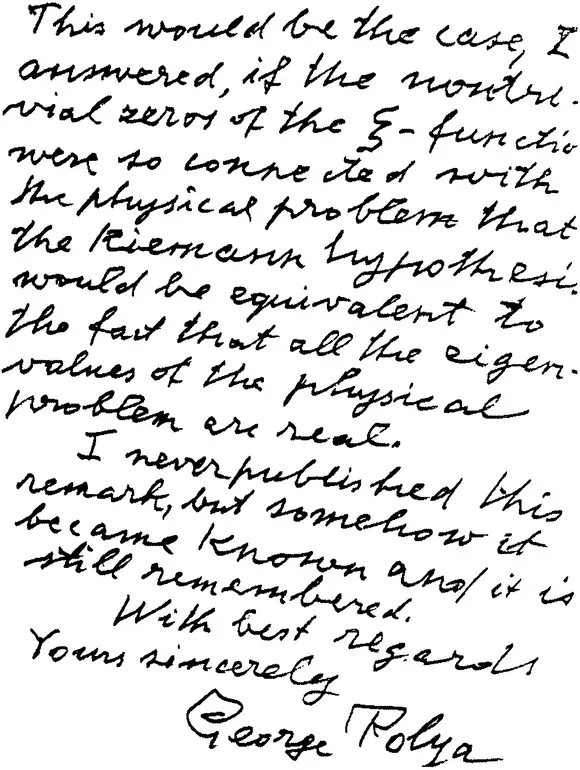 This would be the case, I
answered, if the nontri-
vial zeros of the ξ-functio
were so connected with
the physical problem that
the Riemann hypothesis
would be equivalent to
the fact that all the eigen-
values of the physical
problem are real.
I never published this
remark, but somehow it
became known and it is
still remembered.
With best regards
Yours sincerely
George Polya